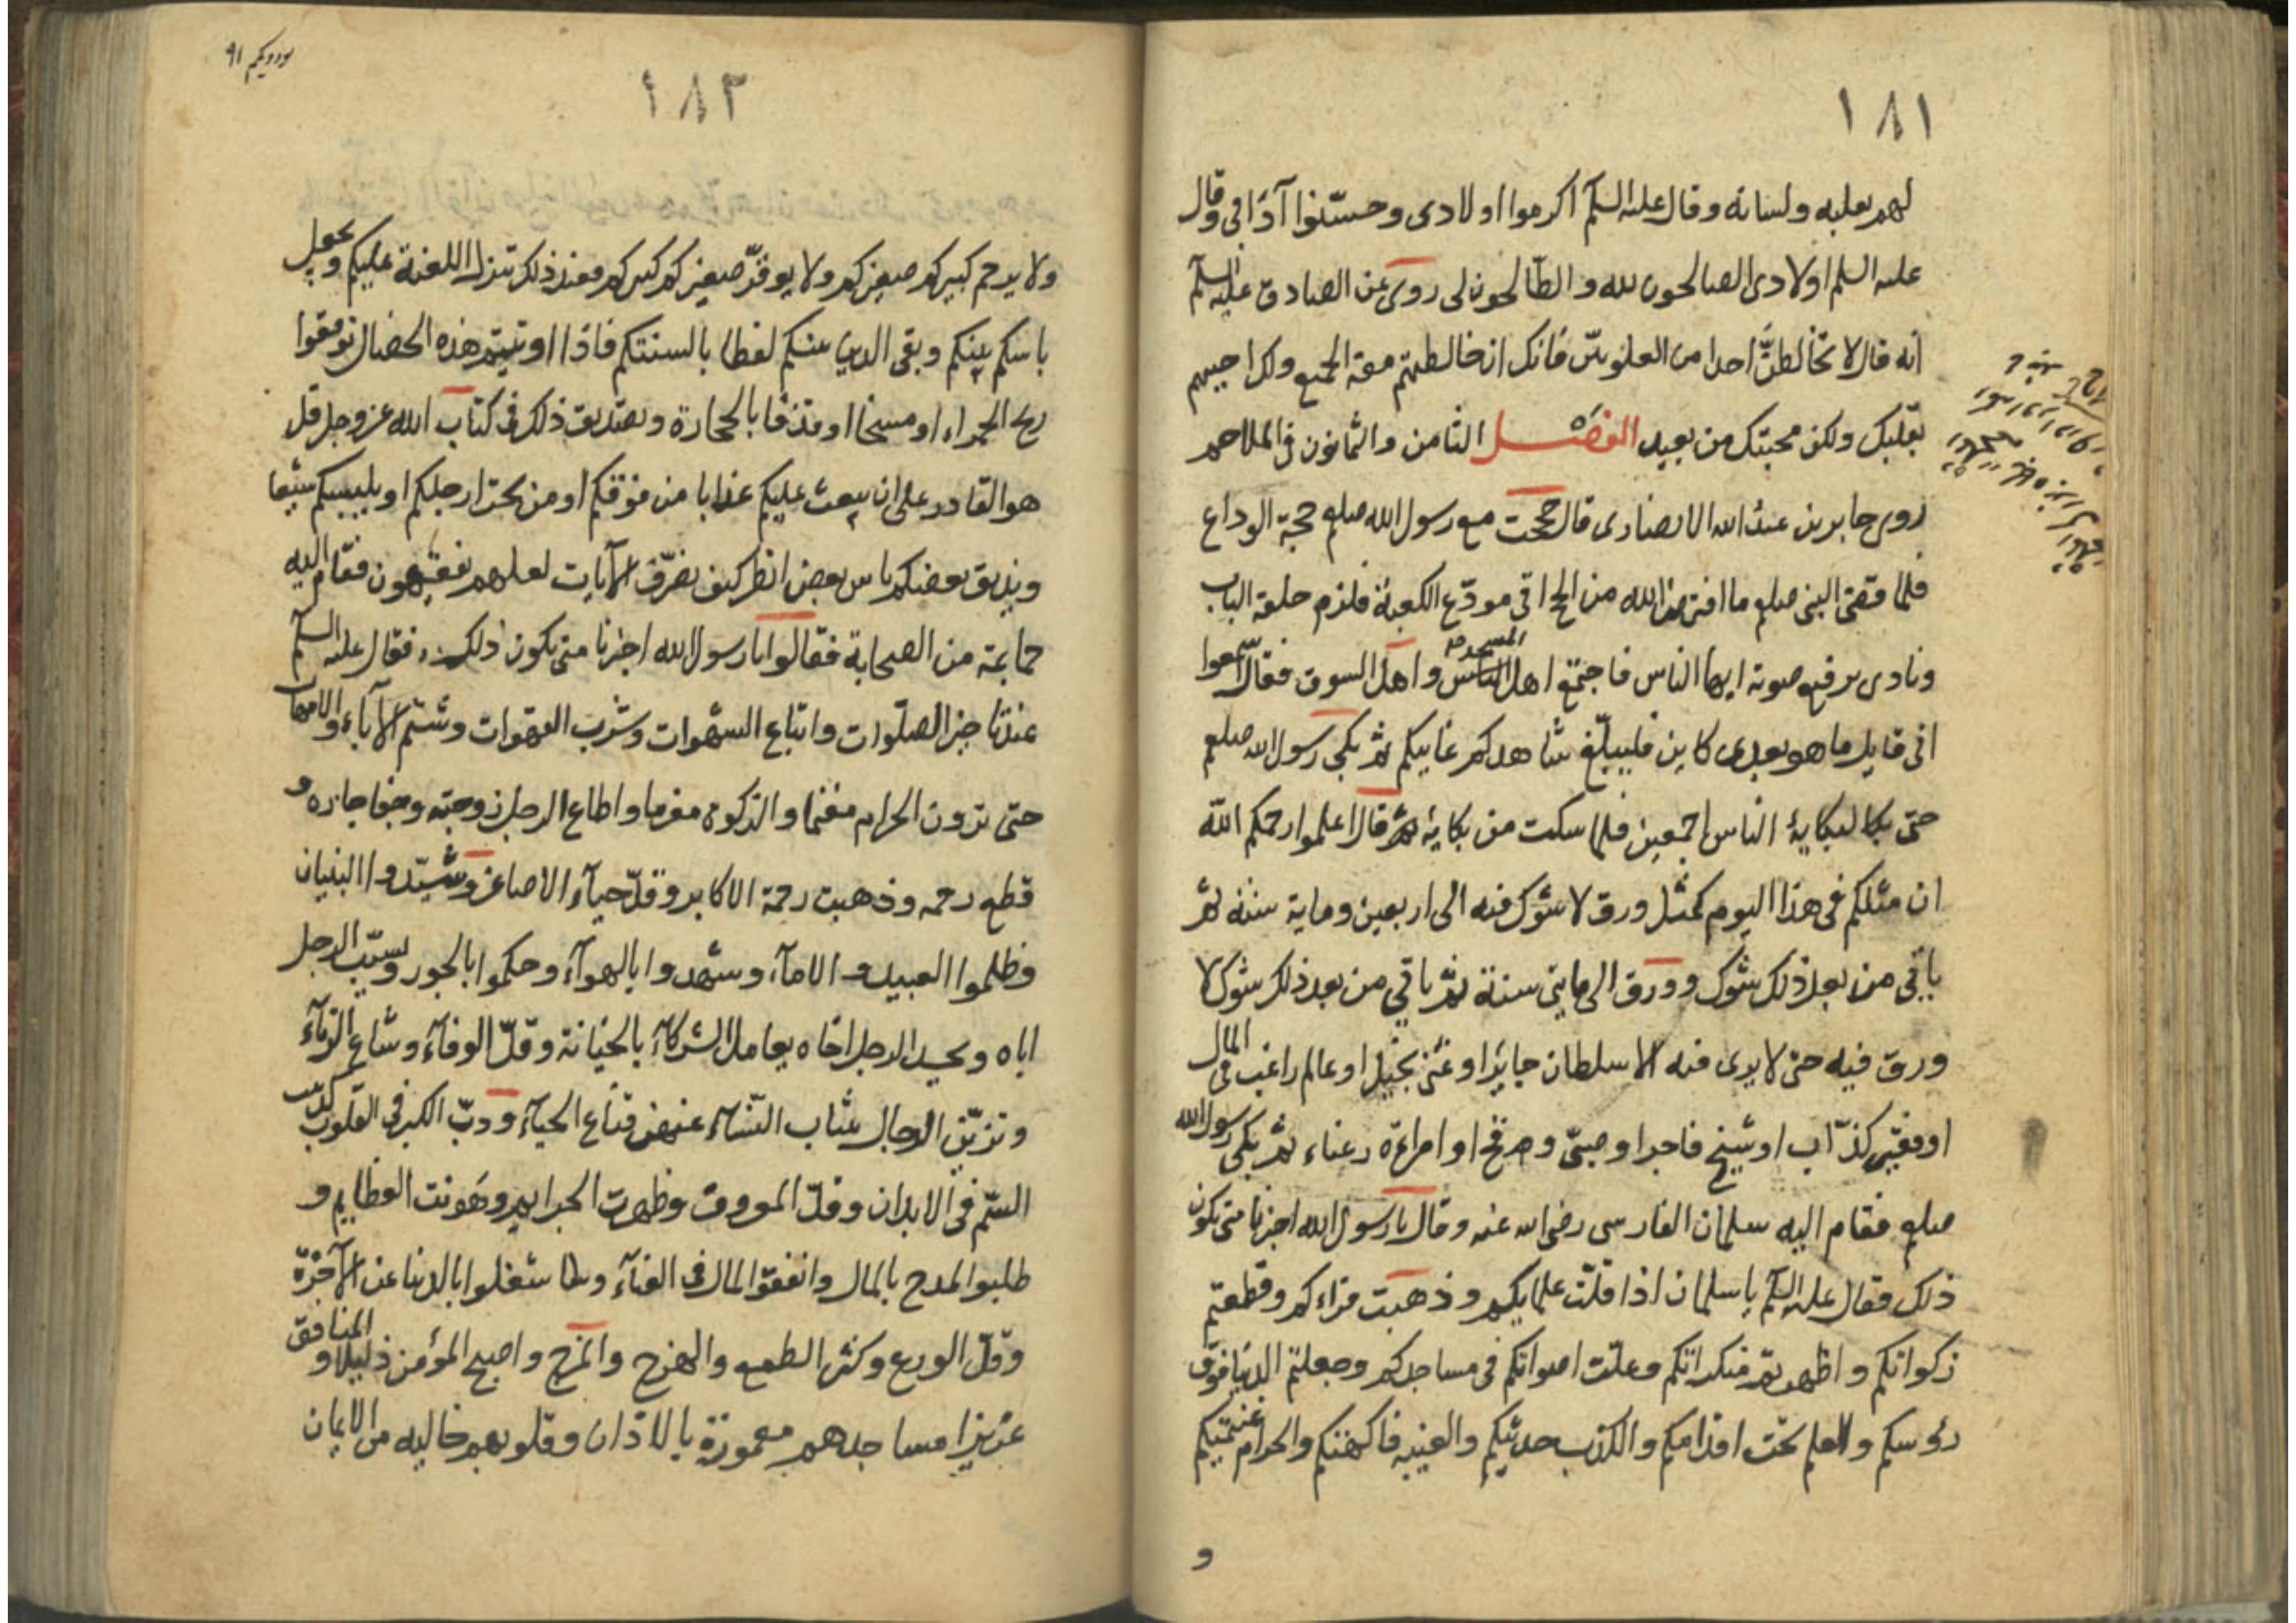 ١٨١
لهم بقلبه ولسانه وقال عليه السلم اكرموا اولادى وحسّنوا آدابى وقال
عليه السلم اولادى الصالحون لله والطالحون لى روى عن الصادق عليه السلم
انه قال لا تخالطنّ احدا من العلويين فانك ان خالطتهم مقتّ الجميع ولكن احببهم
بقلبك ولكن محبتك من بعيد الفصل الثامن والثمانون فى الملاحم
روى جابر بن عبد الله الانصارى قال حججت مع رسول الله صلعم حجة الوداع
فلما قضى النبى صلعم ما افترض الله من الحج اتى مودّع الكعبة فلزم حلقة الباب
ونادى برفع صوته ايها الناس فاجتمع اهل المسجد واهل السوق فقال اسمعوا
انى قايل ما هو بعدى كاين فليبلّغ شاهدكم غايبكم ثم بكى رسول الله صلعم
حتى بكا لبكايه الناس اجمعين فلما سكت من بكايه قال اعلموا رحمكم الله
ان مثلكم فى هذا اليوم كمثل ورق لا شوك فيه الى اربعين وماية سنة ثم
ياتى من بعد ذلك شوك وورق الى مايتى سنة ثم ياتى من بعد ذلك شوك لا
ورق فيه حتى لا يرى فيه الا سلطان جايرا او غنى بخيل او عالم راغب فى المال
او فقير كذّاب او شيخ فاجر او صبىّ وقح او امراءة رعناء ثم بكى رسول الله
صلعم فقام اليه سلمان الفارسى رضى الله عنه وقال يا رسول الله اخبرنا متى يكون
ذلك فقال عليه السلم يا سلمان اذا قلّت علمايكم وذهبت قراءكم وقطعتم
زكواتكم واظهرتم منكراتكم وعلت اصواتكم فى مساجدكم وجعلتم الدنيا فوق
رؤسكم والعلم تحت اقدامكم والكذب حديثكم والغيبه فاكهتكم والحرام غنيمتكم
و
١٨٢
ولا يرحم كبيركم صغيركم ولا يوقّر صغيركم كبيركم فعند ذلك تنزل اللعنة عليكم ويجعل
باسكم بينكم وبقى الدين بينكم لفظا بالسنتكم فاذا اوتيتم هذه الخصال توقعوا
ريح الحمراء او مسخا او قذفا بالحجارة وتصديق ذلك فى كتاب الله عز وجل قل
هو القادر على ان يبعث عليكم عذابا من فوقكم او من تحت ارجلكم او يلبسكم شيعا
ويذيق بعضكم باس بعض انظر كيف نصرّف الآيات لعلهم يفقهون فقام اليه
جماعة من الصحابة فقالوا يا رسول الله اخبرنا متى يكون ذلك فقال عليه السلم
عند تاخير الصلوات واتباع الشهوات وشرب القهوات وشتم الآباء والامهات
حتى ترون الحرام مغنما والزكوة مغرما واطاع الرجل زوجته وجفا جاره و
قطع رحمه وذهبت رحمة الاكابر وقلّ حيآء الاصاغر وشيّدوا البنيان
وظلموا العبيد والامآء وشهدوا بالهوآء وحكموا بالجور ويسبّ الرجل
اباه ويحسد الرجل اخاه يعامل الشركآء بالخيانة وقلّ الوفآء وشاع الزنآء
وتزيّن الرجال بثياب النسآء عنهن قناع الحيآء ودبّ الكبر فى القلوب كدبيب
السّم فى الابدان وقلّ المعروف وظهرت الجرايم وهونت العظايم و
طلبوا المدح بالمال وانفقوا المال فى الغنآء وشغلوا بالدنيا عن الآخرة
وقلّ الورع وكثر الطمع والهرج والمرج واصبح المؤمن ذليلا والمنافق
عزيزا مساجدهم معمورة بالاذان وقلوبهم خاليه من الايمان